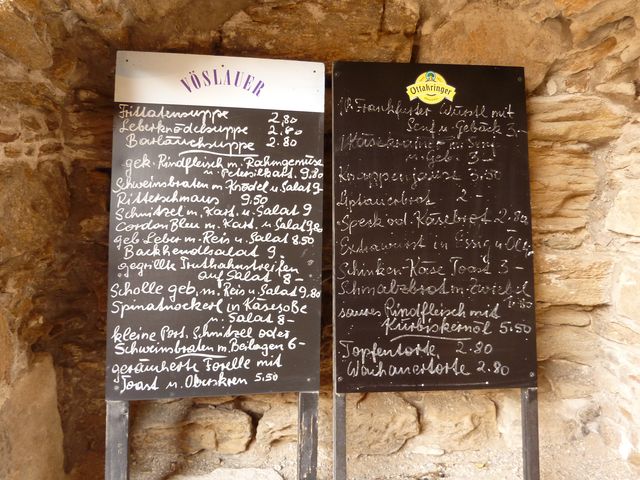 VÖSLAUER
Frittatensuppe 2.80
Leberknödelsuppe 2.80
Bärlauchsuppe 2.80
gek. Rindfleisch m. Rahmgemüse
u. Petersilkart. 9.80
Schweinsbraten m. Knödel u. Salat 9-
Ritterschmaus 9.50
Schnitzel m. Kart. u. Salat 9
Cordon Bleu m. Kart. u. Salat 9.80
geb. Leber m. Reis u. Salat 8.50
Backhendlsalat 9.
gegrillte Truthahnstreifen
auf Salat 8-
Scholle geb. m. Reis u. Salat 9.80
Spinatnockerl in Käsesoße
u. Salat 8-
kleine Port. Schnitzel oder
Schweinsbraten m. Beilagen 6-
geräucherte Forelle mit
Toast u. Oberskren 5.50
Ottakringer
1 P. Frankfurter Würstl mit
Senf u. Gebäck 3-
Käsekrainer m. Senf
u. Geb. 3-
Knappenjause 3.50
2-
Speck od. Käsebrot 2.80
Extrawurst in Essig u. Öl
Schinken-Käse Toast 3-
Schmalzbrot m. Zwiebel
1.80
saures Rindfleisch mit
Kürbiskernöl 5.50
Topfentorte 2.80
Wachauertorte 2.80